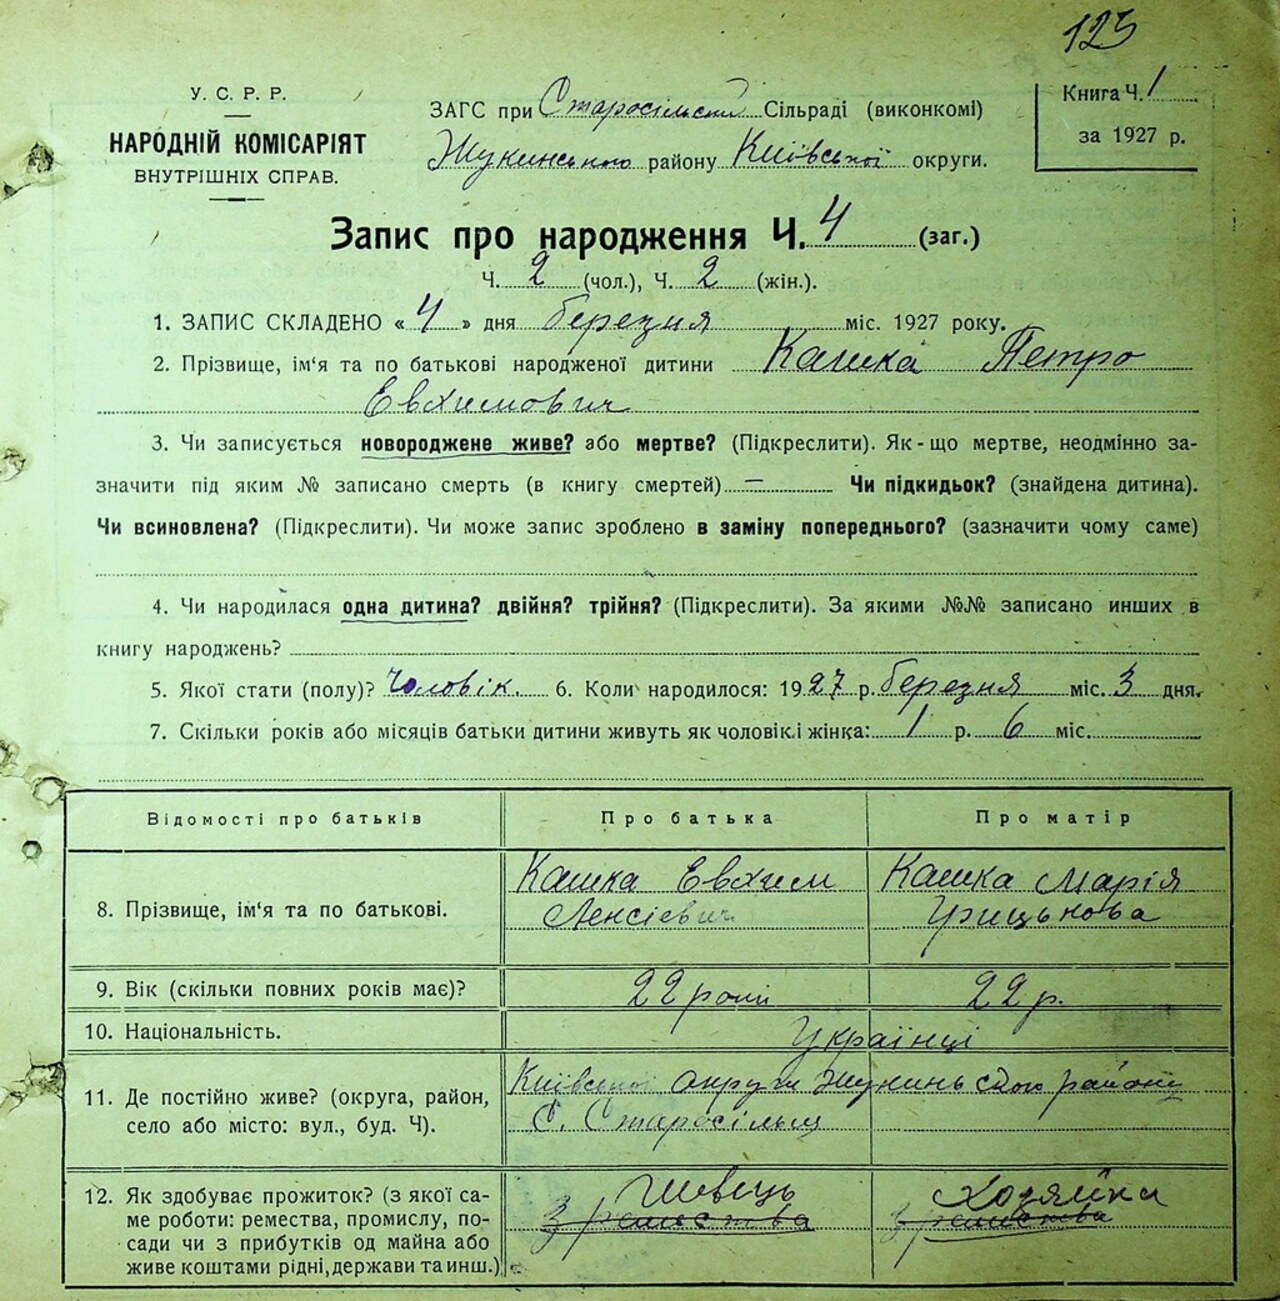 123
У. С. Р. Р.
НАРОДНІЙ КОМІСАРІЯТ
ВНУТРІШНІХ СПРАВ.
ЗАГС при Старосільській Сільраді (виконкомі)
Жукинського району Київської округи.
Книга Ч. 1
за 1927 р.
Запис про народження Ч. 4 (заг.)
Ч. 2 (чол.), Ч. 2 (жін.).
1. ЗАПИС СКЛАДЕНО « 4 » дня березня міс. 1927 року.
2. Прізвище, ім'я та по батькові народженої дитини Кашка Петро
Евхимович
3. Чи записується новороджене живе? або мертве? (Підкреслити). Як-що мертве, неодмінно за-
значити під яким № записано смерть (в книгу смертей) — Чи підкидьок? (знайдена дитина).
Чи всиновлена? (Підкреслити). Чи може запис зроблено в заміну попереднього? (зазначити чому саме)
4. Чи народилася одна дитина? двійня? трійня? (Підкреслити). За якими №№ записано инших в
книгу народжень?
5. Якої стати (полу)? Чоловік. 6. Коли народилося: 1927 р. березня міс. 3 дня.
7. Скільки років або місяців батьки дитини живуть як чоловік і жінка: 1 р. 6 міс.
Відомості про батьків Про батька Про матір
8. Прізвище, ім'я та по батькові.
Кашка Евхим
Лексієвич
Кашка Марія
Грицькова
9. Вік (скільки повних років має)? 22 роки 22 р.
10. Національність. Українці
11. Де постійно живе? (округа, район,
село або місто: вул., буд. Ч).
Київської округи Жукинського району
С. Старосілля
12. Як здобуває прожиток? (з якої са-
ме роботи: ремества, промислу, по-
сади чи з прибутків од майна або
живе коштами рідні, держави та инш.)
Швець
З ремества
Хозяйка
З ремества